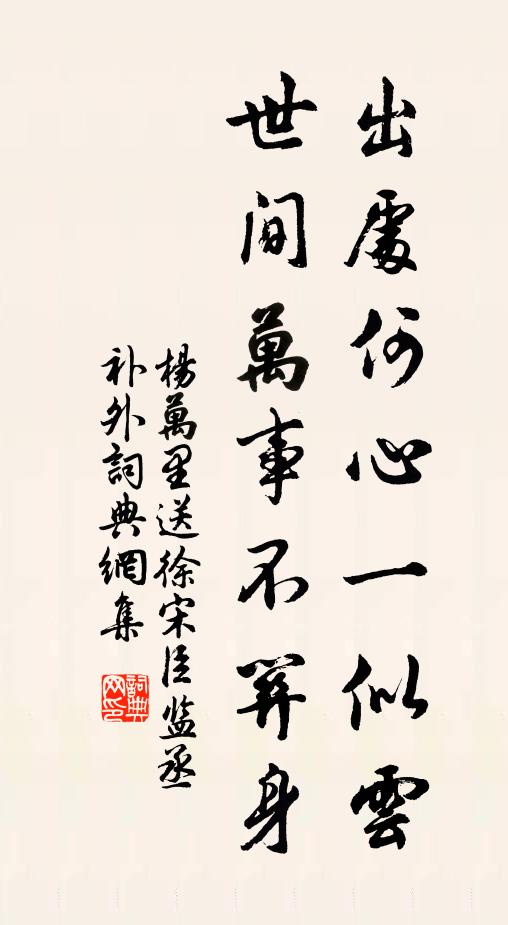 出處何心一似雲
世间萬事不关身
楊萬里送徐宋臣监丞
补外詞典網集
詞典网印